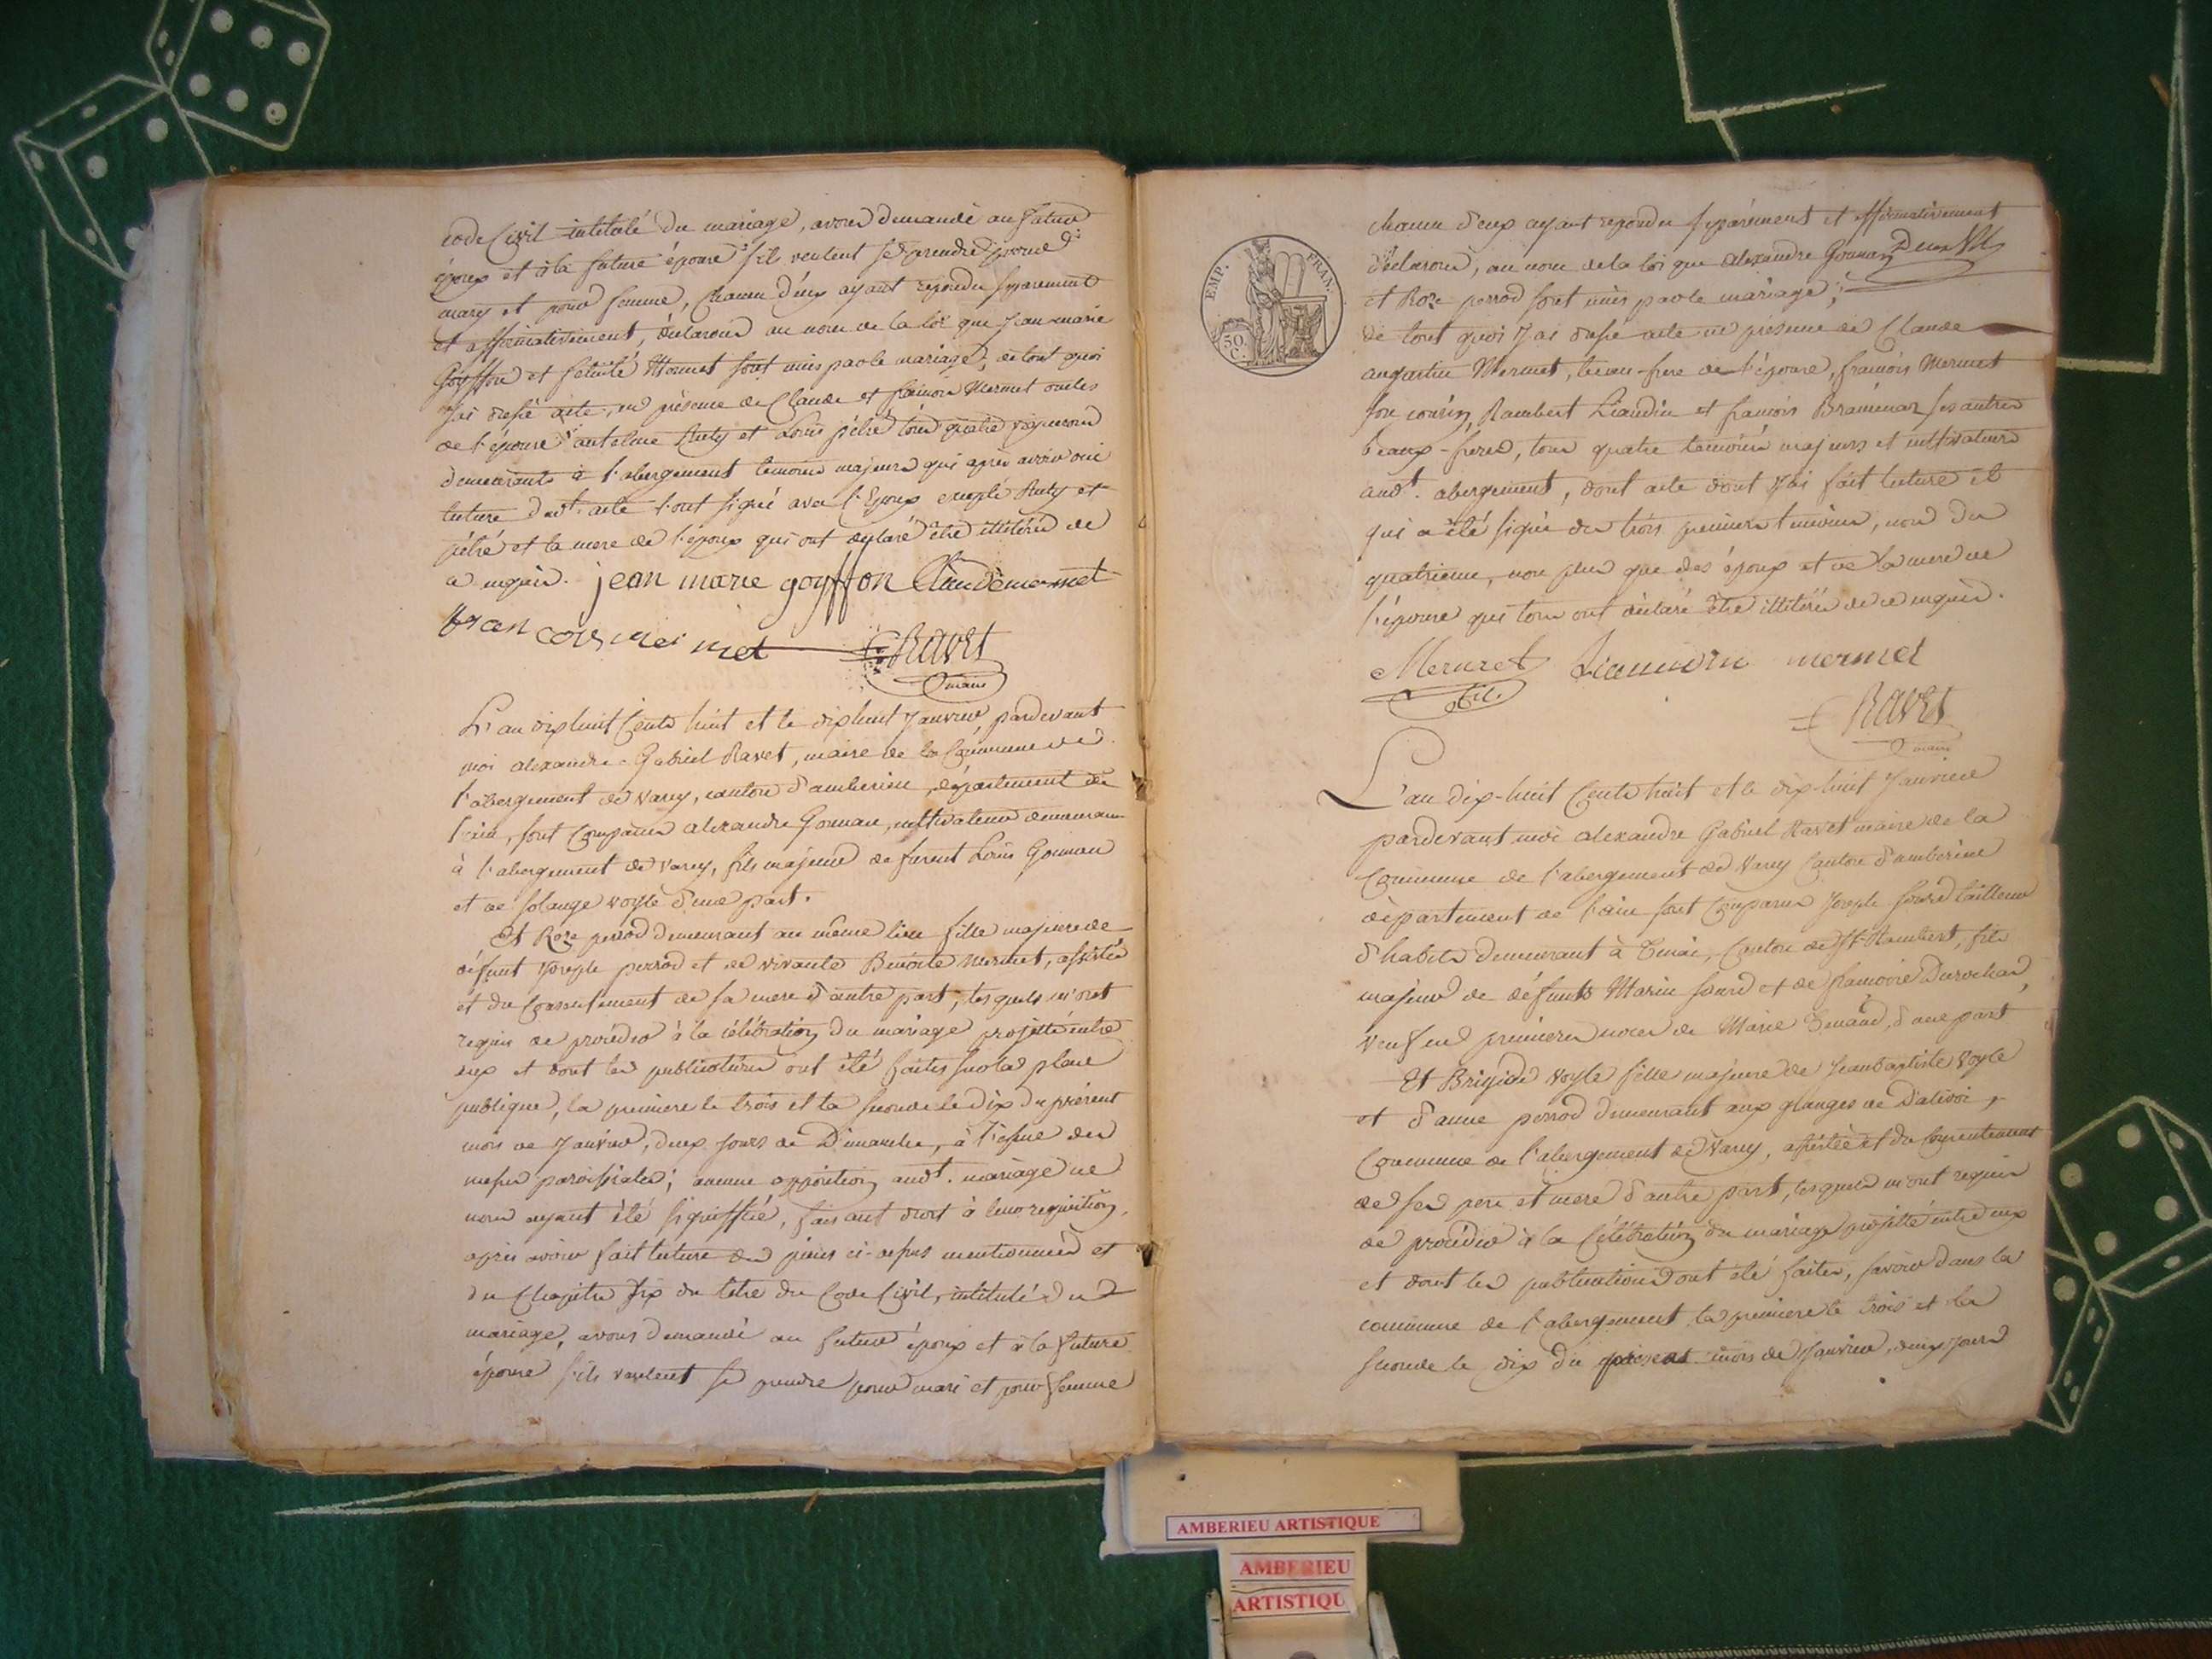 code Civil intitulé du mariage, avons demandé au futur
époux et à la future épouse s'ils veulent se prendre pour
mary et pour femme, chacun d'eux ayant repondu separement
et affirmativement, declarons au nom de la loi que Jean marie
Goyffon et felicité Mermet sont unis par le mariage, de tout quoi
j'ai dressé acte, en présence de Claude et francois Mermet oncles
de l'épouse antelme Ruty et Louis pélié tous quatre vignerons
demeurants à l'abergement temoins majeurs qui après avoir oui
lecture dudt. acte l'ont signé avec l'Epoux excepté Ruty et
pélié et la mere de l'époux qui ont déclaré être illitérés de
ce requis. jean marie goyffon Claude mermet
francois mermet Ravet
maire
L'an dix huit Cents huit et le dix huit Janvier pardevant
moi alexandre Gabriel Ravet, maire de la Commune de
l'abergement de Varey, canton d'amberieu, département de
l'ain, sont Comparus alexandre Gonnan, cultivateur demeurant
à l'abergement de Varey, fils majeur de furent Louis Gonnan
et de solange voyle d'une part.
Et Roze perrod demeurant au même lieu fille majeure de
défunt Joseph perrod et de vivante Benoite Mermet, assistée
et du Consentement de sa mere d'autre part, lesquels m'ont
requis de procéder à la célébration du mariage projetté entre
eux et dont les publications ont été faites sur la place
publique, la premiere le trois et la seconde le dix du présent
mois de Janvier, deux jours de Dimanche, à l'issue des
messes paroissiales; aucune opposition audt. mariage ne
nous ayant été signiffiée, faisant droit à leur requisition,
après avoir fait lecture des pieces ci-dessus mentionnées et
du Chapitre six du titre du Code Civil, intitulé du
mariage, avons demandé au futur époux et à la future
épouse s'ils veulent se prendre pour mari et pour femme
EMP. FRAN.
50 C.
chacun d'eux ayant repondu separement et affirmativement
déclarons, au nom de la loi que alexandre Gonnan
et Roze perrod sont unis par le mariage;
de tout quoi J'ai dressé acte en présence de Claude
augustin Mermet, beau-frere de l'épouse, francois Mermet
son cousin, Rambert Liaudin et francois Bramenar ses autres
beaux-freres, tous quatre temoins majeurs et cultivateurs
audt. abergement, dont acte dont j'ai fait lecture et
qui a été signé des trois premiers temoins, non du
quatrieme, non plus que des époux et de la mere de
l'épouse qui tous ont déclaré être illitérés de ce enquis.
Mermet Liaudin mermet
Ravet
maire
L'an dix-huit Cents huit et le dix-huit Janvier
pardevant moi alexandre Gabriel Ravet maire de la
Commune de l'abergement de Varey Canton d'amberieu
département de l'ain sont Comparus Joseph tailleur
d'habits demeurant à Tenai, Canton de St. Rambert, fils
majeur de défunts Marin et de francoise Durochar,
veuf en premieres noces de Marie Tenand, d'une part
Et Brigide voyle fille majeure de Jean baptiste voyle
et d'anne perrod demeurant aux granges de Dalivoi,
Commune de l'abergement de Varey, assistée et du Consentement
de ses pere et mere d'autre part, lesquels m'ont requis
de procéder à la Célébration du mariage projetté entre eux
et dont les publications ont été faites, savoir dans la
commune de l'abergement la premiere le trois et la
seconde le dix du présent mois de Janvier, deux jours
AMBERIEU ARTISTIQUE
AMBERIEU
ARTISTIQU